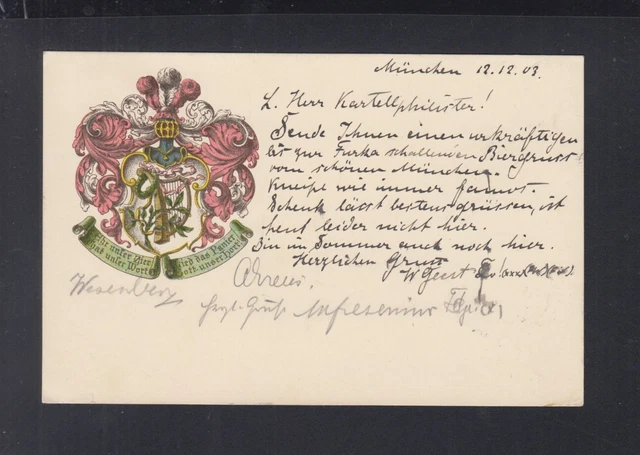 München 12.12.03.
L. Herr Kartellphilister!
Sende Ihnen einen urkräftigen
bis zur Furka schallenden Biergruss
vom schönen München.
Kneipe wie immer famos.
Schenk lässt bestens grüssen, ist
heut leider nicht hier.
Bin im Sommer auch noch hier.
Herzlichen Gruss
W Geest
unser Wort
Lied das Panier
Gott unser Hort
Wesenberg
Ahrens.
Herzl. Gruß Fresenius